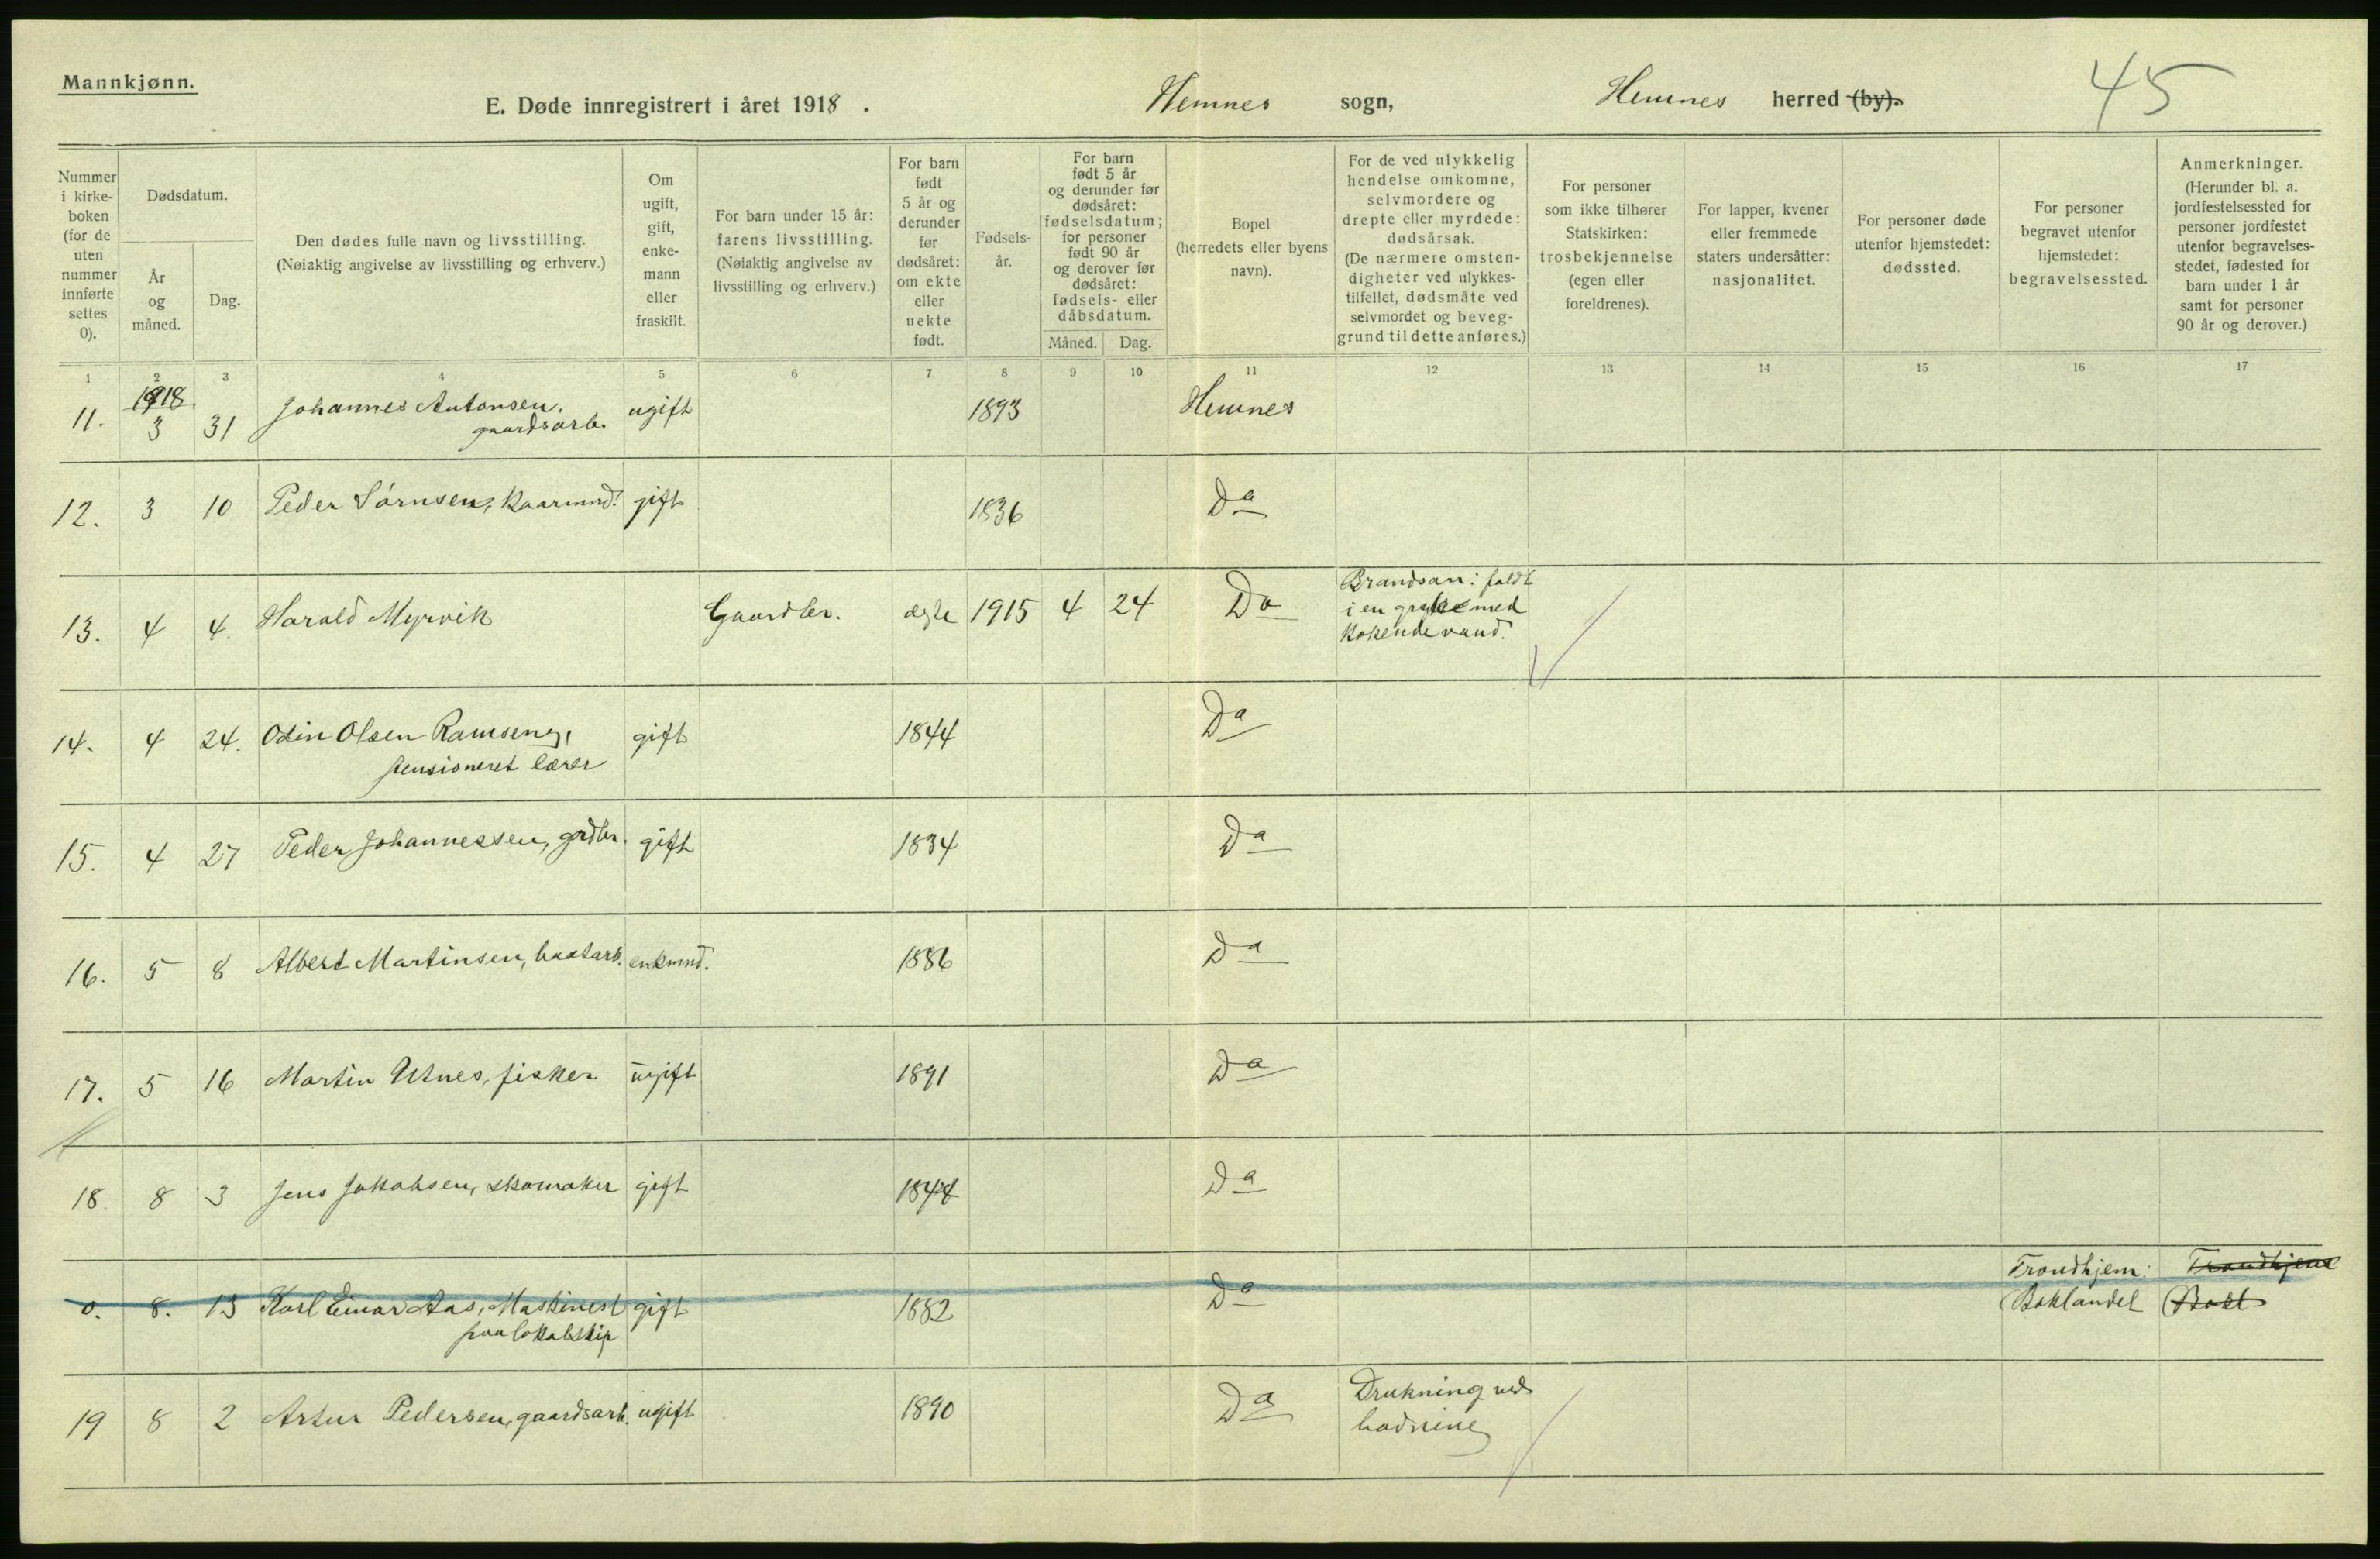 Mannkjønn.
E. Døde innregistrert i året 1918. Hemnes sogn, Hemnes herred (by). 45
Nummer i kirke- boken (for de uten nummer innførte settes 0).
Dødsdatum.
År og måned.
Dag.
Den dødes fulle navn og livsstilling.
(Nøiaktig angivelse av livsstilling og erhverv.)
Om ugift, gift, enke- mann eller fraskilt.
For barn under 15 år: farens livsstilling.
(Nøiaktig angivelse av livsstilling og erhverv.)
For barn født 5 år og derunder før dødsåret: om ekte eller uekte født.
Fødsels- år.
For barn født 5 år og derunder før dødsåret: fødselsdatum; for personer født 90 år og derover før dødsåret: fødsels- eller dåbsdatum.
Måned. Dag.
Bopel (herredets eller byens navn).
For de ved ulykkelig hendelse omkomne, selvmordere og drepte eller myrdede: dødsårsak.
(De nærmere omsten- digheter ved ulykkes- tilfellet, dødsmåte ved selvmordet og beveg- grund til dette anføres.)
For personer som ikke tilhører Statskirken: trosbekjennelse (egen eller foreldrenes).
For lapper, kvener eller fremmede staters undersåtter: nasjonalitet.
For personer døde utenfor hjemstedet: dødssted.
For personer begravet utenfor hjemstedet: begravelsessted.
Anmerkninger.
(Herunder bl. a. jordfestelsessted for personer jordfestet utenfor begravelses- stedet, fødested for barn under 1 år samt for personer 90 år og derover.)
1 2 3 4 5 6 7 8 9 10 11 12 13 14 15 16 17
1918
11. 3 31 Johannes Antonsen, ugift 1893 Hemnes
gaardsarb.
12. 3 10 Peder Sørnsen, Kaarmnd. gift 1836 Do
13. 4 4. Harald Myrvik Gaardbr. ægte 1915 4 24 Do Brandsaar: faldt
i en gryte med
kokende vand.
14. 4 24. Odin Olsen Ramseng, gift 1844 Do
pensioneret lærer
15. 4 27 Peder Johannessen, grdbr. gift 1834 Do
16. 5 8 Albert Martinsen, baatarb. enkmnd. 1886 Do
17. 5 16 Martin Utnes, fisker ugift 1891 Do
18 8 3 Jens Jakobsen, skomaker gift 1844 Do
0. 8. 13 Karl Einar Aas, Maskinist gift 1882 Do Trondhjem: Trondhjem
paa lokalskip Baklandet Bakl
19 8 2 Artur Pedersen, gaardsarb. ugift 1890 Do Drukning ved
badning